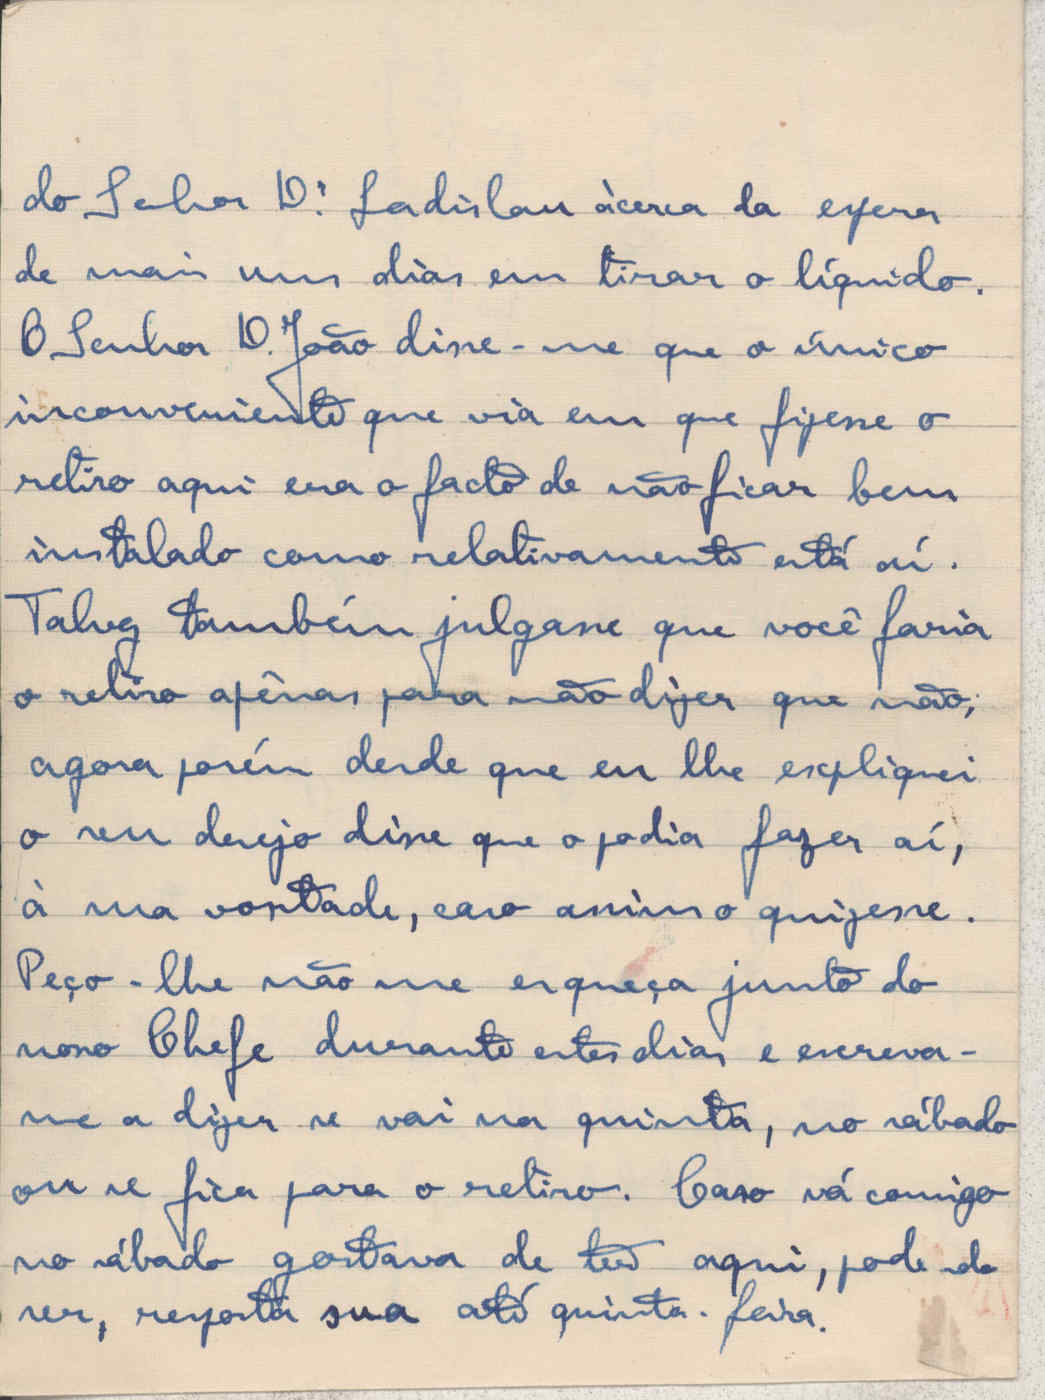 do Senhor Dr. Ladislau àcerca da espera
de mais uns dias em tirar o líquido.
O Senhor D. João disse-me que o único
inconveniente que via em que fizesse o
retiro aqui era o facto de não ficar bem
instalado como relativamente está aí.
Talvez também julgasse que você faria
o retiro apênas para não dizer que não;
agora porém desde que eu lhe expliquei
o seu desejo disse que o podia fazer aí,
à sua vontade, caso assim o quizesse.
Peço-lhe não me esqueça junto do
nosso Chefe durante estes dias e escreva-
me a dizer se vai na quinta, no sábado
ou se fica para o retiro. Caso vá comigo
no sábado gostava de ter aqui, pode
ser, resposta sua até quinta-feira.